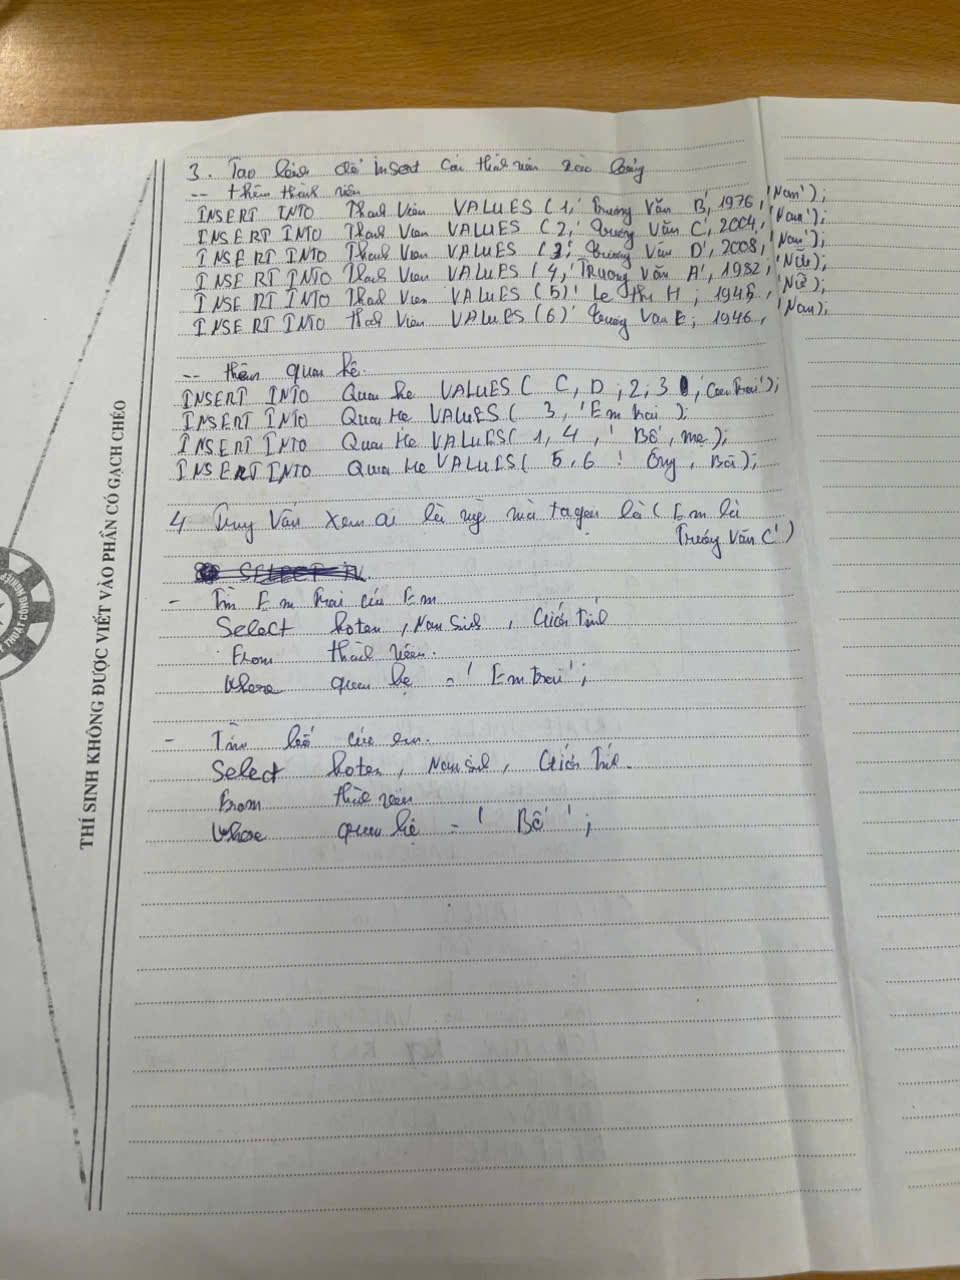 3. Tạo lệnh để insert các thành viên vào bảng
-- thêm thành viên
INSERT INTO Thành Viên VALUES (1,' Trương Văn B', 1976, 'Nam');
INSERT INTO Thành Viên VALUES (2,' Trương Văn C', 2004, 'Nam');
INSERT INTO Thành Viên VALUES (3,' Trương Văn D', 2008, 'Nam');
INSERT INTO Thành Viên VALUES (4,' Trương Văn A', 1982, 'Nữ);
INSERT INTO Thành Viên VALUES (5)' Le thi H, 1945, 'Nữ);
INSERT INTO thành Viên VALUES (6)' Trương Van E, 1946, 'Nam);
-- thêm quan hệ.
INSERT INTO Quan he VALUES ( C, D, 2, 3 , 'Con trai');
INSERT INTO Quan He VALUES ( 3, 'Em trai );
INSERT INTO Quan He VALUES( 1, 4, ' Bố, mẹ);
INSERT INTO Quan He VALUES( 5, 6 ' Ông, Bà);
4 Truy Vấn xem ai là là ( Em là
Trương Văn C')
- Tìm Em trai của Em
Select hoten, Nam Sinh, Giới Tính
From thành viên.
Where quan hệ = ' Em trai';
- Tìm bố của em.
Select hoten, Nam sinh, Giới Tính.
From thành viên
Where quan hệ = ' Bố ';
THÍ SINH KHÔNG ĐƯỢC VIẾT VÀO PHẦN CÓ GẠCH CHÉO
THUẬT CÔNG NGHIỆP